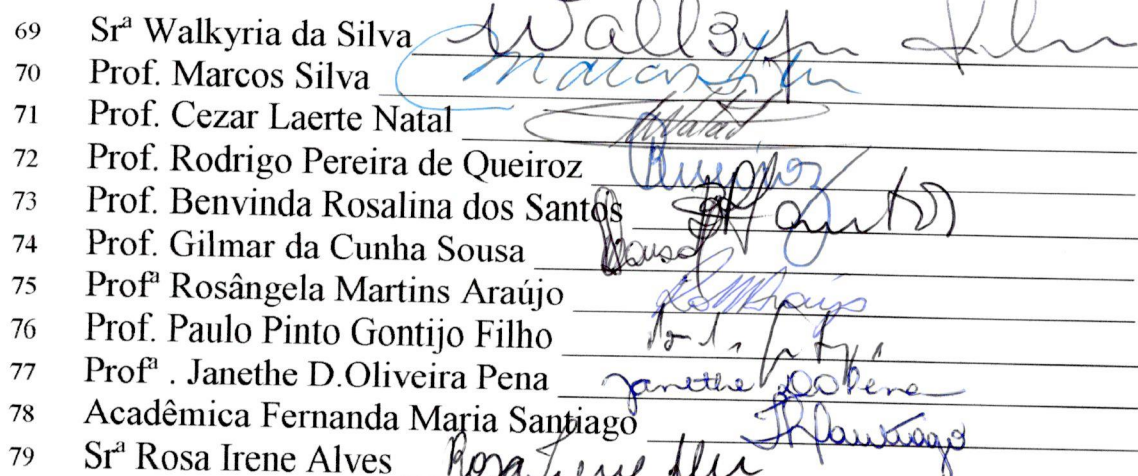 69 Srª Walkyria da Silva Walkyria Silva
70 Prof. Marcos Silva Marcos Silva
71 Prof. Cezar Laerte Natal Natal
72 Prof. Rodrigo Pereira de Queiroz RQueiroz
73 Prof. Benvinda Rosalina dos Santos Santos
74 Prof. Gilmar da Cunha Sousa Sousa
75 Profª Rosângela Martins Araújo RMAraújo
76 Prof. Paulo Pinto Gontijo Filho
77 Profª . Janethe D.Oliveira Pena Janethe DOPena
78 Acadêmica Fernanda Maria Santiago FMSantiago
79 Srª Rosa Irene Alves Rosa Irene Alves